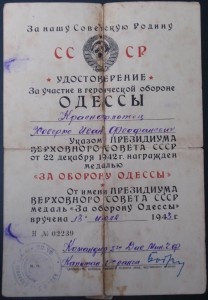 За нашу Советскую Родину
СС СР
УДОСТОВЕРЕНИЕ
За участие в героической обороне
ОДЕССЫ
Краснофлотец
Иван
Указом ПРЕЗИДИУМА
ВЕРХОВНОГО СОВЕТА СССР
от 22 декабря 1942 г. награжден
медалью
«ЗА ОБОРОНУ ОДЕССЫ»
От имени ПРЕЗИДИУМА
ВЕРХОВНОГО СОВЕТА СССР
медаль «За оборону Одессы»
вручена 13 1943 г.
П № 02239
Командир
Капитан